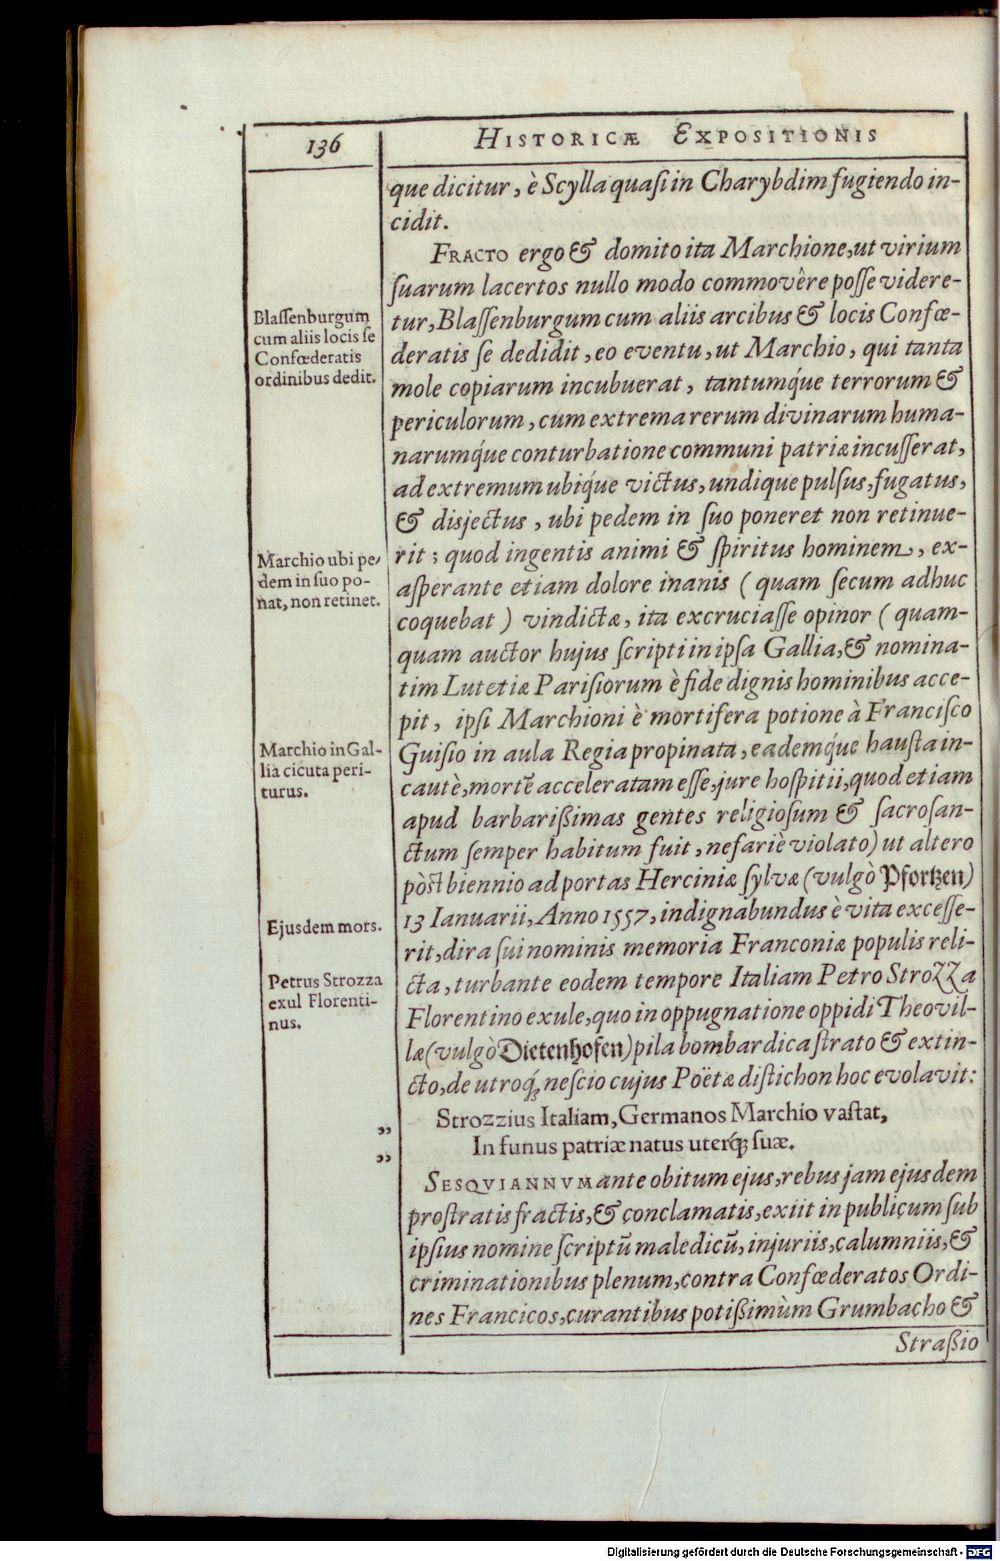 136
HISTORICÆ EXPOSITIONIS
que dicitur, è Scylla quaſi in Charybdim fugiendo in-
cidit.
FRACTO ergo & domito ita Marchione, ut virium
ſuarum lacertos nullo modo commovère poſſe videre-
tur, Blaſſenburgum cum aliis arcibus & locis Confœ-
deratis ſe dedidit, eo eventu, ut Marchio, qui tanta
mole copiarum incubuerat, tantumq́ue terrorum &
periculorum, cum extrema rerum divinarum huma-
narumq́ue conturbatione communi patriæ incuſſerat,
ad extremum ubiq́ue victus, undique pulſus, fugatus,
& disjectus, ubi pedem in ſuo poneret non retinue-
rit; quod ingentis animi & ſpiritus hominem, ex-
aſperante etiam dolore inanis (quam ſecum adhuc
coquebat) vindictæ, ita excruciaſſe opinor (quam-
quam auctor hujus ſcripti in ipſa Gallia, & nomina-
tim Lutetiæ Pariſiorum è fide dignis hominibus acce-
pit, ipſi Marchioni è mortifera potione à Franciſco
Guiſio in aula Regia propinata, eademq́ue hauſta in-
cautè, mortē acceleratam eſſe, jure hoſpitii, quod etiam
apud barbarißimas gentes religioſum & ſacroſan-
ctum ſemper habitum fuit, nefariè violato) ut altero
pòſt biennio ad portas Herciniæ ſylvæ (vulgò Pfortzen)
13 Ianuarii, Anno 1557, indignabundus è vita exceſſe-
rit, dira ſui nominis memoria Franconiæ populis reli-
cta, turbante eodem tempore Italiam Petro Strozza
Florentino exule, quo in oppugnatione oppidi Theovil-
læ (vulgò Dietenhofen) pila bombardica ſtrato & extin-
cto, de utroq́; neſcio cujus Poëtæ diſtichon hoc evolavit:
„ Strozzius Italiam, Germanos Marchio vaſtat,
„ In funus patriæ natus uterq́; ſuæ.
SESQVIANNVM ante obitum ejus, rebus jam ejusdem
proſtratis fractis, & conclamatis, exiit in publicum ſub
ipſius nomine ſcriptū maledicū, injuriis, calumniis, &
criminationibus plenum, contra Confœderatos Ordi-
nes Francicos, curantibus potißimùm Grumbacho &
Straßio
Blaſſenburgum
cum aliis locis ſe
Confœderatis
ordinibus dedit.
Marchio ubi pe-
dem in ſuo po-
nat, non retinet.
Marchio in Gal-
lia cicuta peri-
turus.
Ejusdem mors.
Petrus Strozza
exul Florenti-
nus.
Digitalisierung gefördert durch die Deutsche Forschungsgemeinschaft - DFG